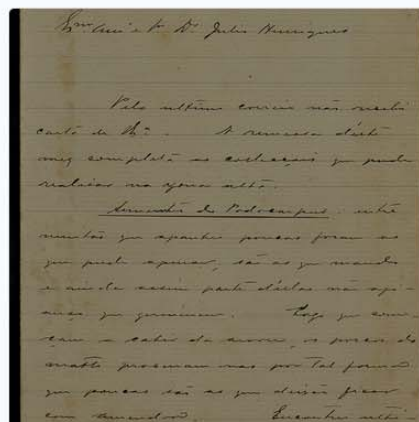 Exmo. Amo. e Sr. Dr. Julio Henriques
Pelo ultimo correio não recebi
carta de Va. A remessa d'este
mez completa as collecções que pude
realisar na zona alta.
Sementes de Podocarpus: entre
muitas que apanhei poucas foram as
que pude apurar, são as que mando
e ainda assim parte d'estas não
que germinem. Logo que
a cahir da arvore, os porcos do
matto procuram-nas por tal forma
que poucas são as que deixam ficar
com amendoa. Encontrei